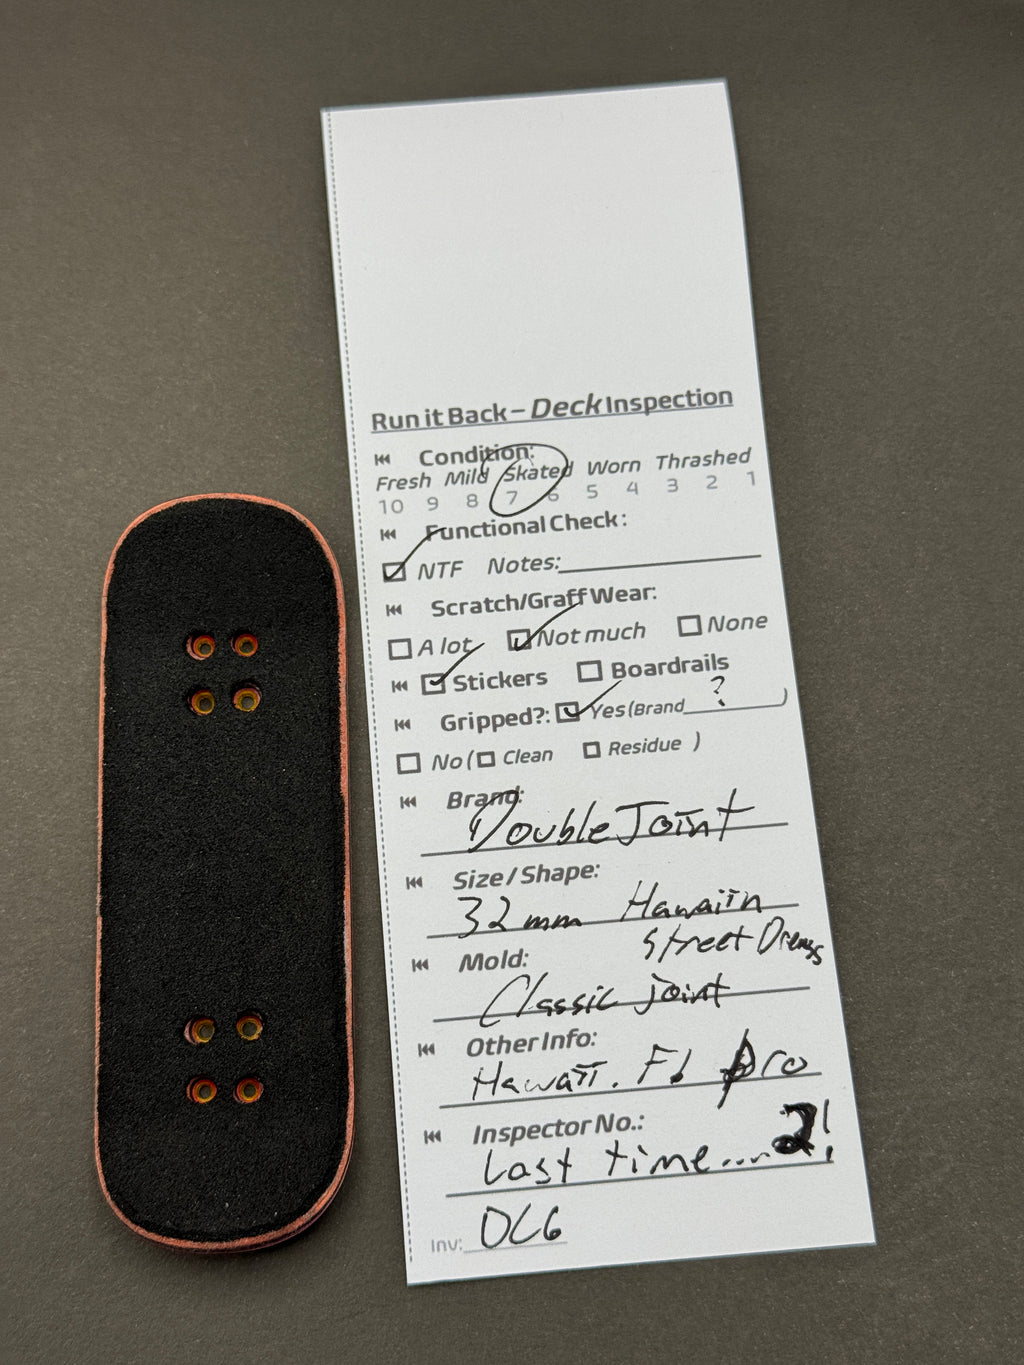 Run it Back – Deck Inspection
Condition:
Fresh Mild Skated Worn Thrashed
10 9 8 7 6 5 4 3 2 1
Functional Check:
NTF Notes:
Scratch/Graff Wear:
A lot Not much None
Stickers Boardrails
Gripped?: Yes (Brand ? )
No ( Clean Residue )
Brand:
Double Joint
Size / Shape:
32mm Hawaiin
Street
Mold:
Classic Joint
Other Info:
Hawaii. Pro
Inspector No.:
Last time.... 2!
Inv: